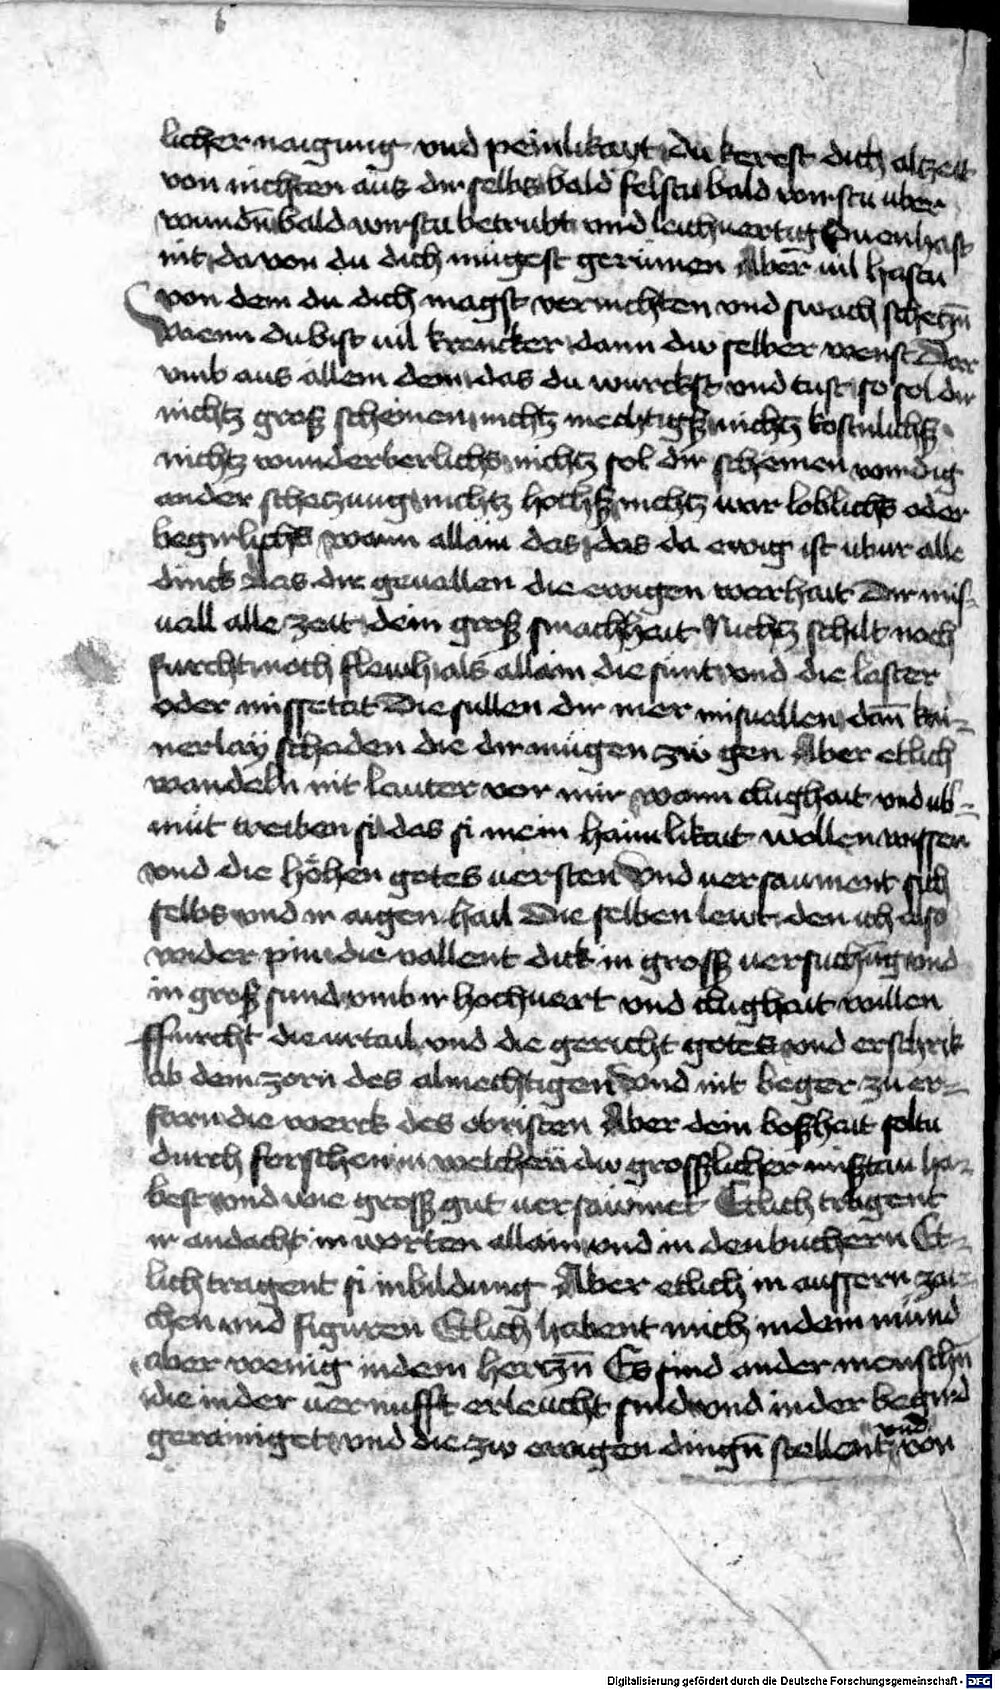 licher naigung vnd peinlikayt du kerest dich alzeit
von nichten aus dir selbs bald felstu bald wirstu uber
wundn̄ bald wirstu betrubt vnd leichuertig Du enhast
nit da von du dich mügest gerümen Aber uil hastu
von dem du dich magst vernichten vnd swach schetzn̄
Wenn du bist uil krencker dann dw selber wenst Dar
vmb aus allem dem das du wurckst vnd tust so sol dir
nichtz groß scheinen nichtz mechtigß nichtz kostlichß
nichtz wunderberlichs nichtz sol dir scheinen wirdig
ander schetzung nichtz hochß nichtz war loblichs oder
begirlichs wann allain das das da ewig ist ubir alle
dinck Las dir geuallen die ewigen warhait Dir mis-
uall alle zeit dein groß smachhait Nichtz schilt noch
furcht noch flewh als allain die sünt vnd die laster
oder missetat Die sullen dir mer misuallen dan̄ kai-
nerlay schaden die dir mügen zw gen Aber etlich
wandeln nit lauter vor mir wann clughait vnd ub-
müt treiben si das si mein haimlikait wollen wissen
vnd die höhen gotes uersten Vnd uersaument sich
selbs vnd ir aigen hail Die selben lewt den ich also
wider pin die vallent dick in gross uersuchung vnd
in groß sund vmb ir hochuert vnd clughait willen
ffurcht die urtail vnd die gericht gotes vnd erschrik
ab dem zorn des almechtigen Vnd nit beger zu er-
farn die werck des obristen Aber dein boßhait soltu
durch forschen in welchen dw grosslicher mißtan ha-
best vnd wie gross gut uersawmet Etlich tragent
ir andacht in worten allain vnd in den buchern Et-
lich tragent si in bildung Aber etlich in aussern zai-
chen vnd figuren Etlich habent mich in dem mund
aber wenig in dem hertzn̄ Es sind ander menschn̄
die in der uernufft erleucht sind vnd in der begird
gerainiget vnd die zw ewigen dingn̄ stellent vnd von
Digitalisierung gefördert durch die Deutsche Forschungsgemeinschaft - DFG